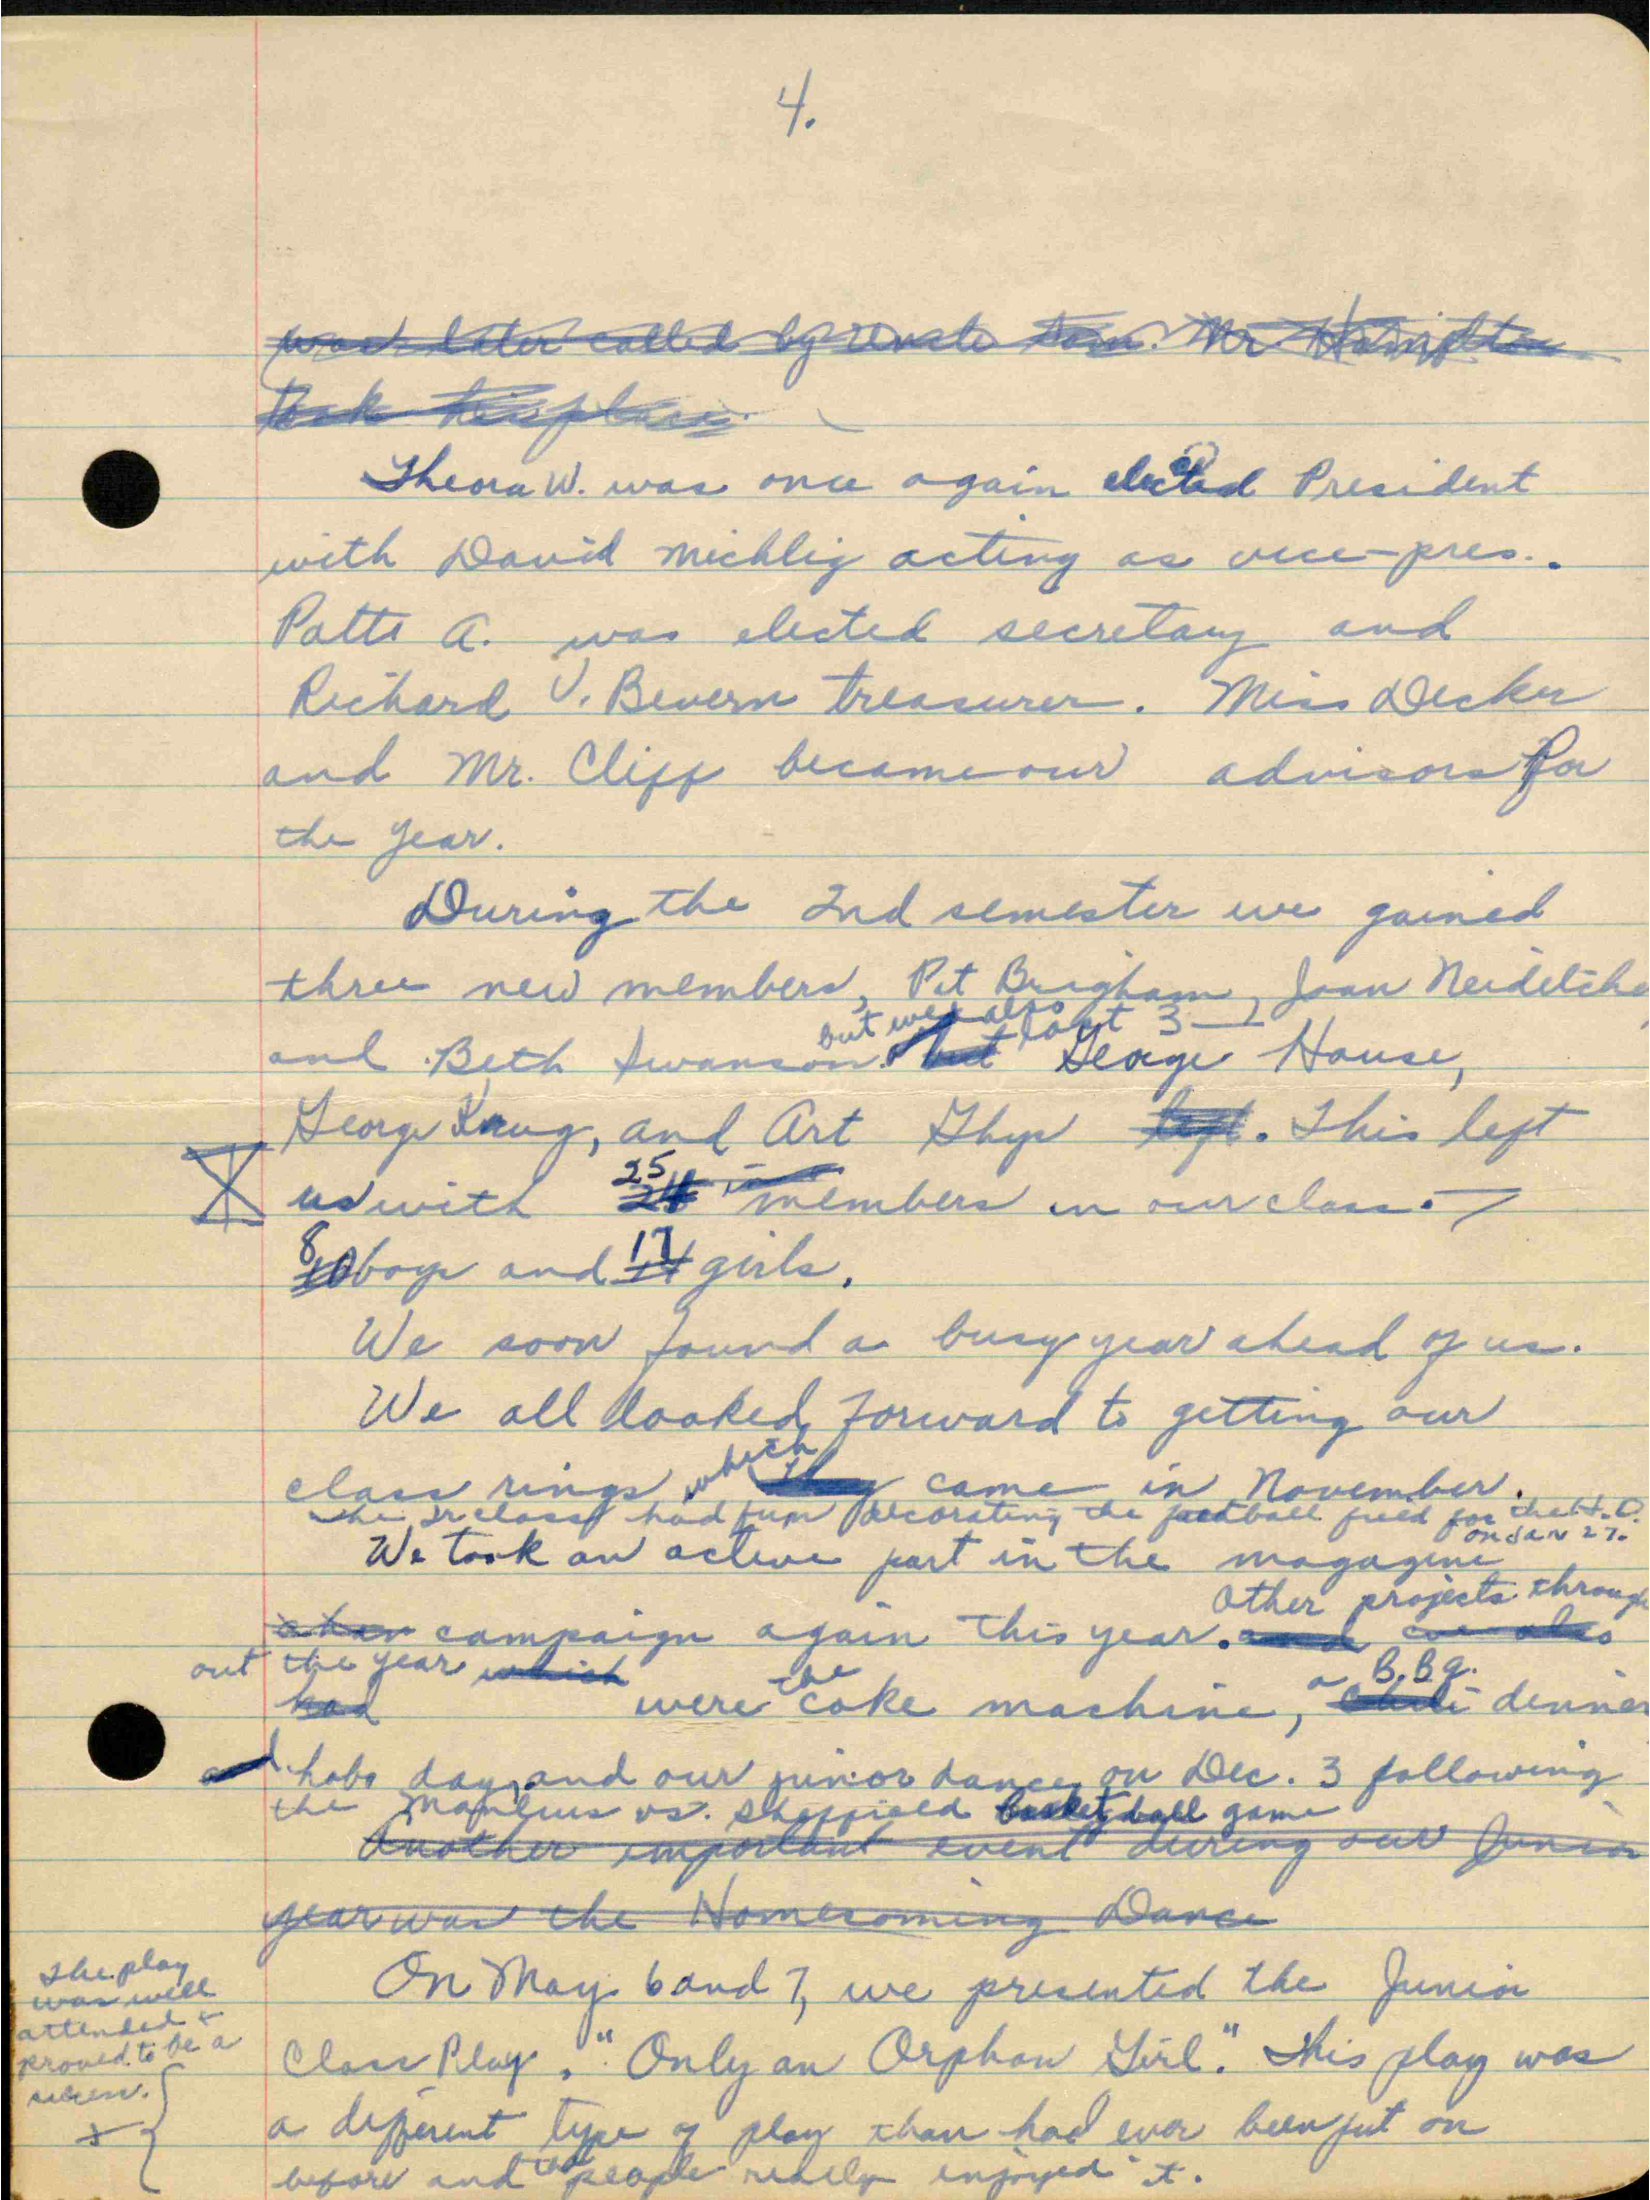 4.
was later called by Uncle Sam. Mr.
took his place.
Theora W. was once again elected President
with David Michlig acting as vice-pres..
Patti A. was elected secretary and
Richard V. Bevern treasurer. Miss Decker
and Mr. Cliff became our advisors for
the year.
During the 2nd semester we gained
three new members, Pat Brigham, Joan
but we also lost 3 —
and Beth Swanson. but George House,
George Krug, and Art Thys left. This left
25
us with 24 in members in our class. —
8 17
10 boys and 14 girls.
We soon found a busy year ahead of us.
We all looked forward to getting our
which
class rings, they came in November.
The Jr class had fun decorating the football field for the H.C.
on Jan 27.
We took an active part in the magazine
Other projects through
campaign again this year. and we also
out the year which
had were the coke machine, a B.B.q. chili dinner
and hobo day, and our junior dance, on Dec. 3 following
the Manlius vs. Sheffield basketball game
Another important event during our Junior
year was the Homecoming Dance
On May 6 and 7, we presented the Junior
Class Play, "Only an Orphan Girl." This play was
a different type of play than had ever been put on
before and the people really enjoyed it.
The play
was well
attended +
proved to be a
success.